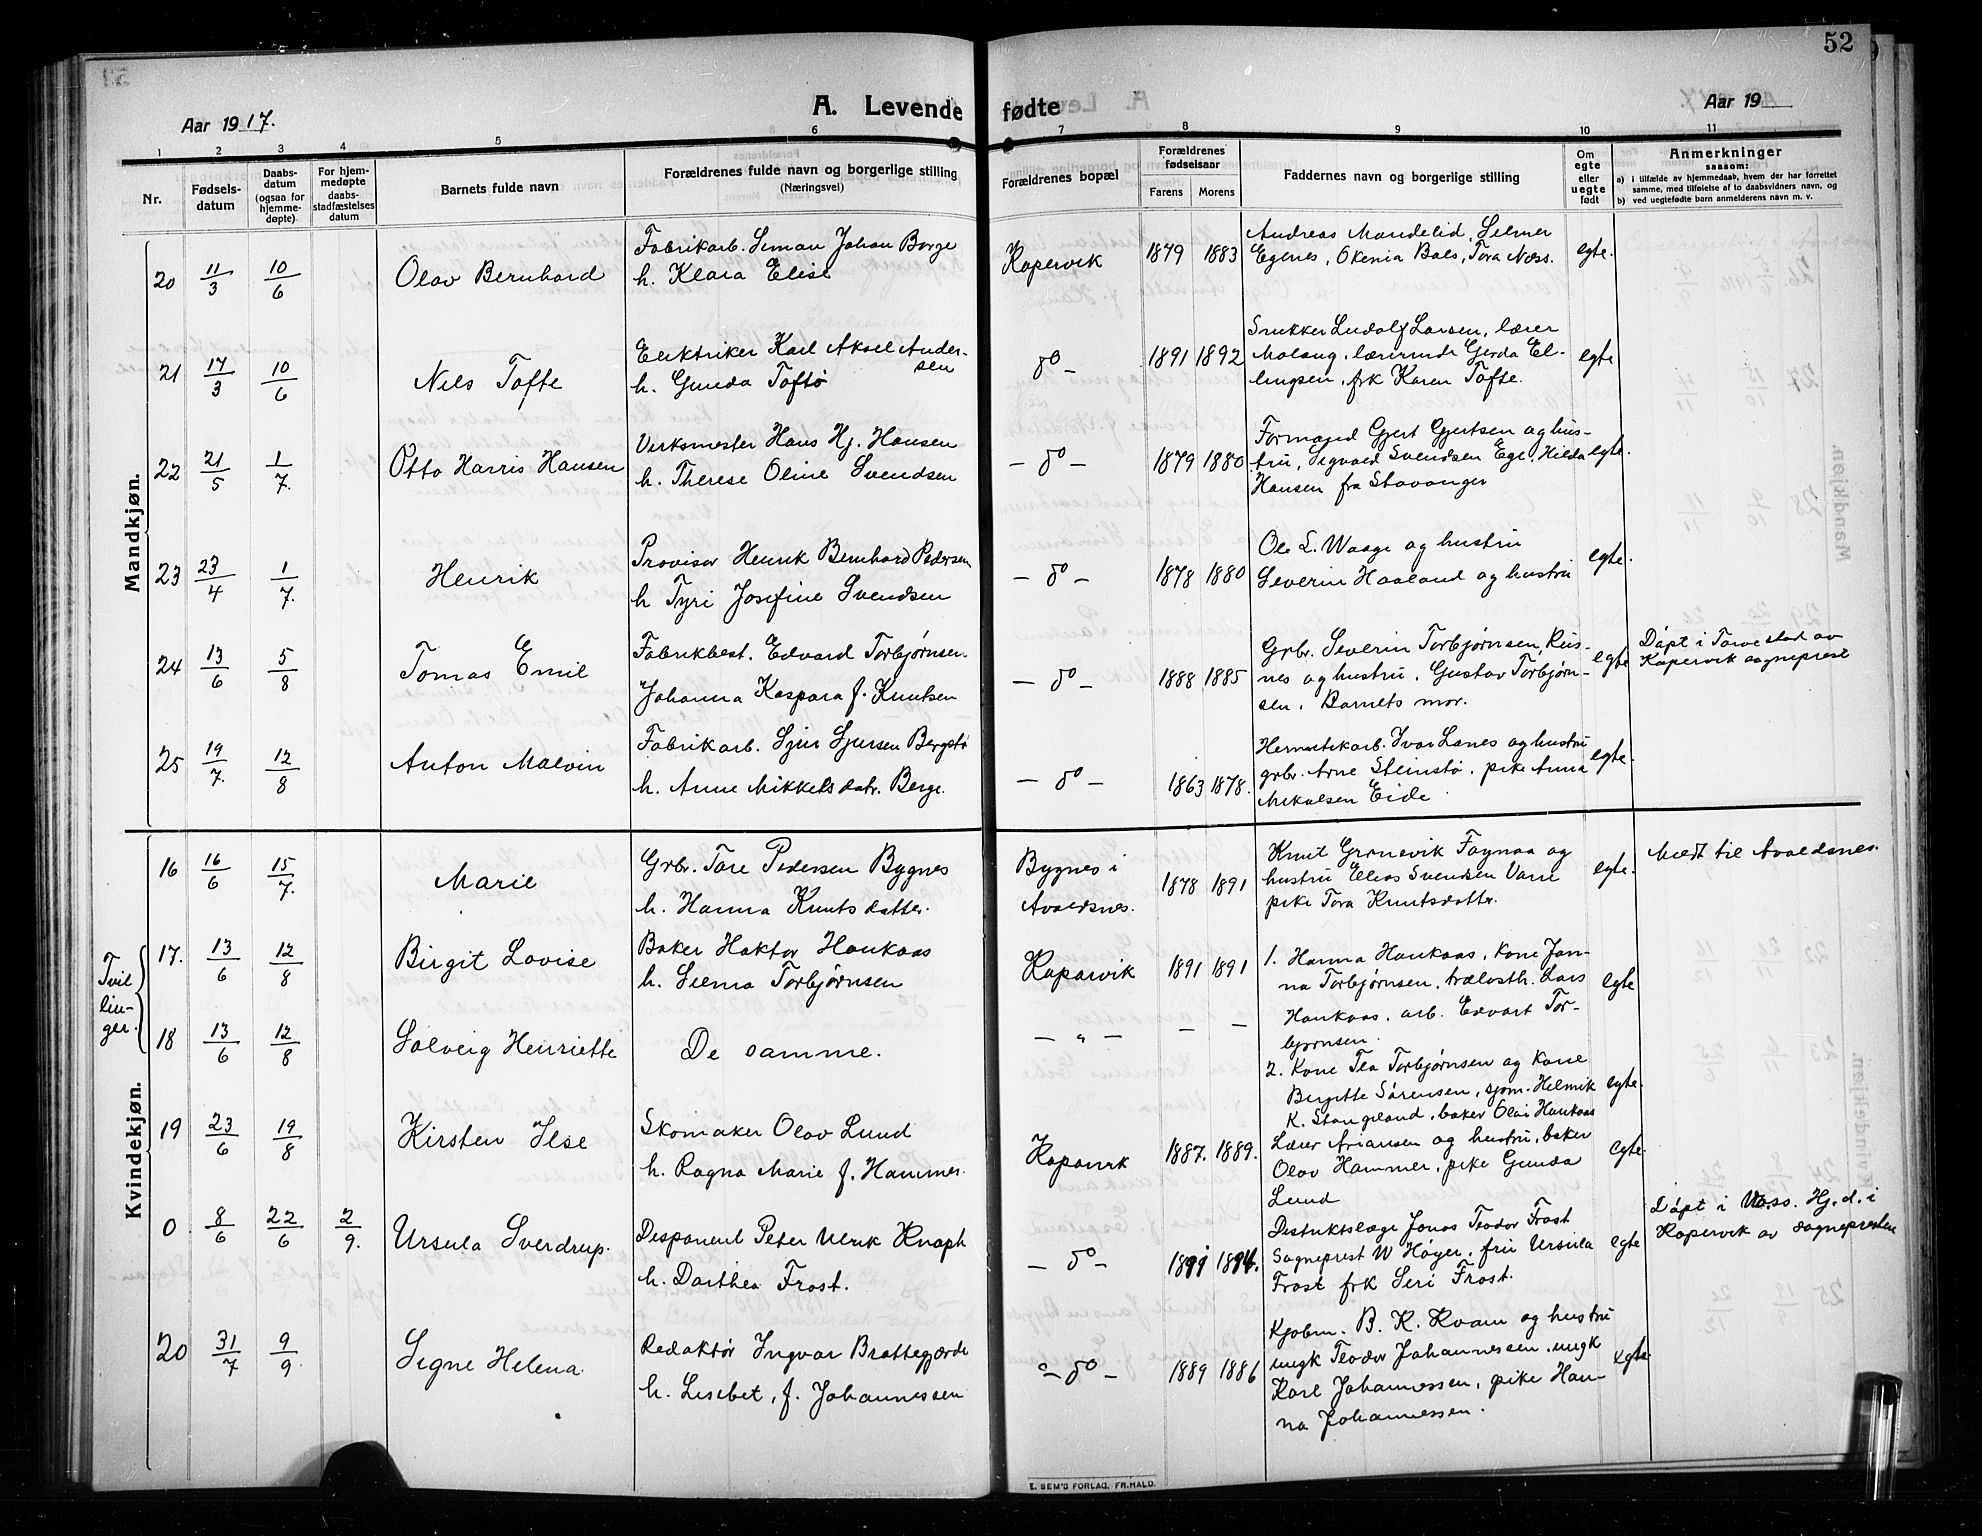 52
A. Levende fødte
Aar 1917.
Aar 19
1 2 3 4 5 6 7 8 9 10 11
Nr.
Fødselsdatum
Daabsdatum (ogsaa for hjemmedøpte)
For hjemmedøpte daabsstadfæstelses datum
Barnets fulde navn
Forældrenes fulde navn og borgerlige stilling
(Næringsvei)
Forældrenes bopæl
Forældrenes fødselsaar
Farens Morens
Faddernes navn og borgerlige stilling
Om egte eller uegte født
Anmerkninger
saasom:
a) i tilfælde av hjemmedaab, hvem der har forrettet samme, med tilføielse af to daabsvidners navn, og
b) ved uegtefødte barn anmelderens navn m. v.
Mandkjøn.
20 11/3 10/6 Olav Bernhard
Fabrikarb. Simon Johan Borge
h. Klara Elise
Kopervik 1879 1883
Andreas Mandelid, Selmer
Egenes, Okenia Boes, Tora Næss.
egte.
21 17/3 10/6 Nils Tofte
Elektriker Karl Aksel Andersen
h. Gunda Toftø
do 1891 1892
Snekker Ludolf Larsen, lærer
Molaug, lærerinde Gerda Ellingsen,
frk Karen Tofte.
egte
22 21/5 1/7. Otto Harris Hansen
Verksmester Hans Hj. Hansen
h. Therese Oline Svendsen
do 1879 1880
Formand Gjert Gjertsen og hustru,
Sigvald Svendsen Ege, Hilda
Hansen fra Stavanger
egte.
23 23/4 1/7. Henrik
Provisor Henrik Bernhard Pedersen
h Tyri Josefine Svendsen
do 1878 1880
Ole L. Waage og hustru
Severin Haaland og hustru
egte.
24 13/6 5/8 Tomas Emil
Fabrikbest. Edvard Torbjørnsen.
Johanna Kaspara f. Knutsen
do 1888 1885
Grbr. Severin Torbjørnsen, Rusnes
og hustru, Gustav Torbjørnsen,
Barnets mor.
egte
Døpt i Torvestad av
Kopervik sogneprest
25 19/7. 12/8 Anton Malvin
Fabrikarb. Sjur Sjursen Bergstø
h. Anne Mikkelsdatr. Berge.
do 1863 1878.
Hermetikarb. Ivar Lanes og hustru
grbr. Arne Steinstø, pike Anna
Mikalsen Eide
egte.
Kvindekjøn.
16 16/6 15/7. Marie
Grbr. Tore Pedersen Bygnes
h. Hanna Knutsdatter.
Bygnes i
Avaldsnes.
1878 1891
Knut Grønevik Fagnaa og
hustru Elias Svendsen Varre
pike Tora Knutsdatter.
egte.
Meldt til Avaldsnes.
Tvillinger.
17. 13/6 12/8 Birgit Lovise
Baker Haktor Haukaas
h. Selma Torbjørnsen
Kopervik 1891 1891
1. Hanna Haukaas, kone Janna
Torbjørnsen, trælasth. Lars
Haukaas, arb. Edvart Torbjørnsen.
egte
18 13/6 12/8 Solveig Henriette
De samme.
2. Kone Tea Torbjørnsen og kone
Birgitte Sørensen, sjøm. Helmik
K. Stangeland, baker Olai Haukaas
egte.
19 23/6 19/8 Kirsten Ilse
Skomaker Olav Lund
h. Ragna Marie f. Hammer.
Kopervik 1887. 1889.
Lærer Ariansen og hustru, baker
Olav Hammer, pike Gunda
Lund
egte.
0 8/6 22/6 2/9. Ursula Sverdrup.
Disponent Peter Ulrik Knoph
h. Dorthea Frost.
do
Distriktslæge Jonas Teodor Frost
Sogneprest W Høyer, fru Ursula
Frost frk Siri Frost.
egte
Døpt i Voss. Hj. d. i
Kopervik av sognepresten
20 31/7 9/9 Signe Helena.
Redaktør Ingvar Brattegjerde
h. Lisebet, f. Johannessen
do 1889 1886
Kjøbm. B. K. Kvam og hustru
ungk Teodor Johannessen, ungk
Karl Johannessen, pike Hanna
Johannessen.
egte
E. SEM'S FORLAG, FR.HALD.